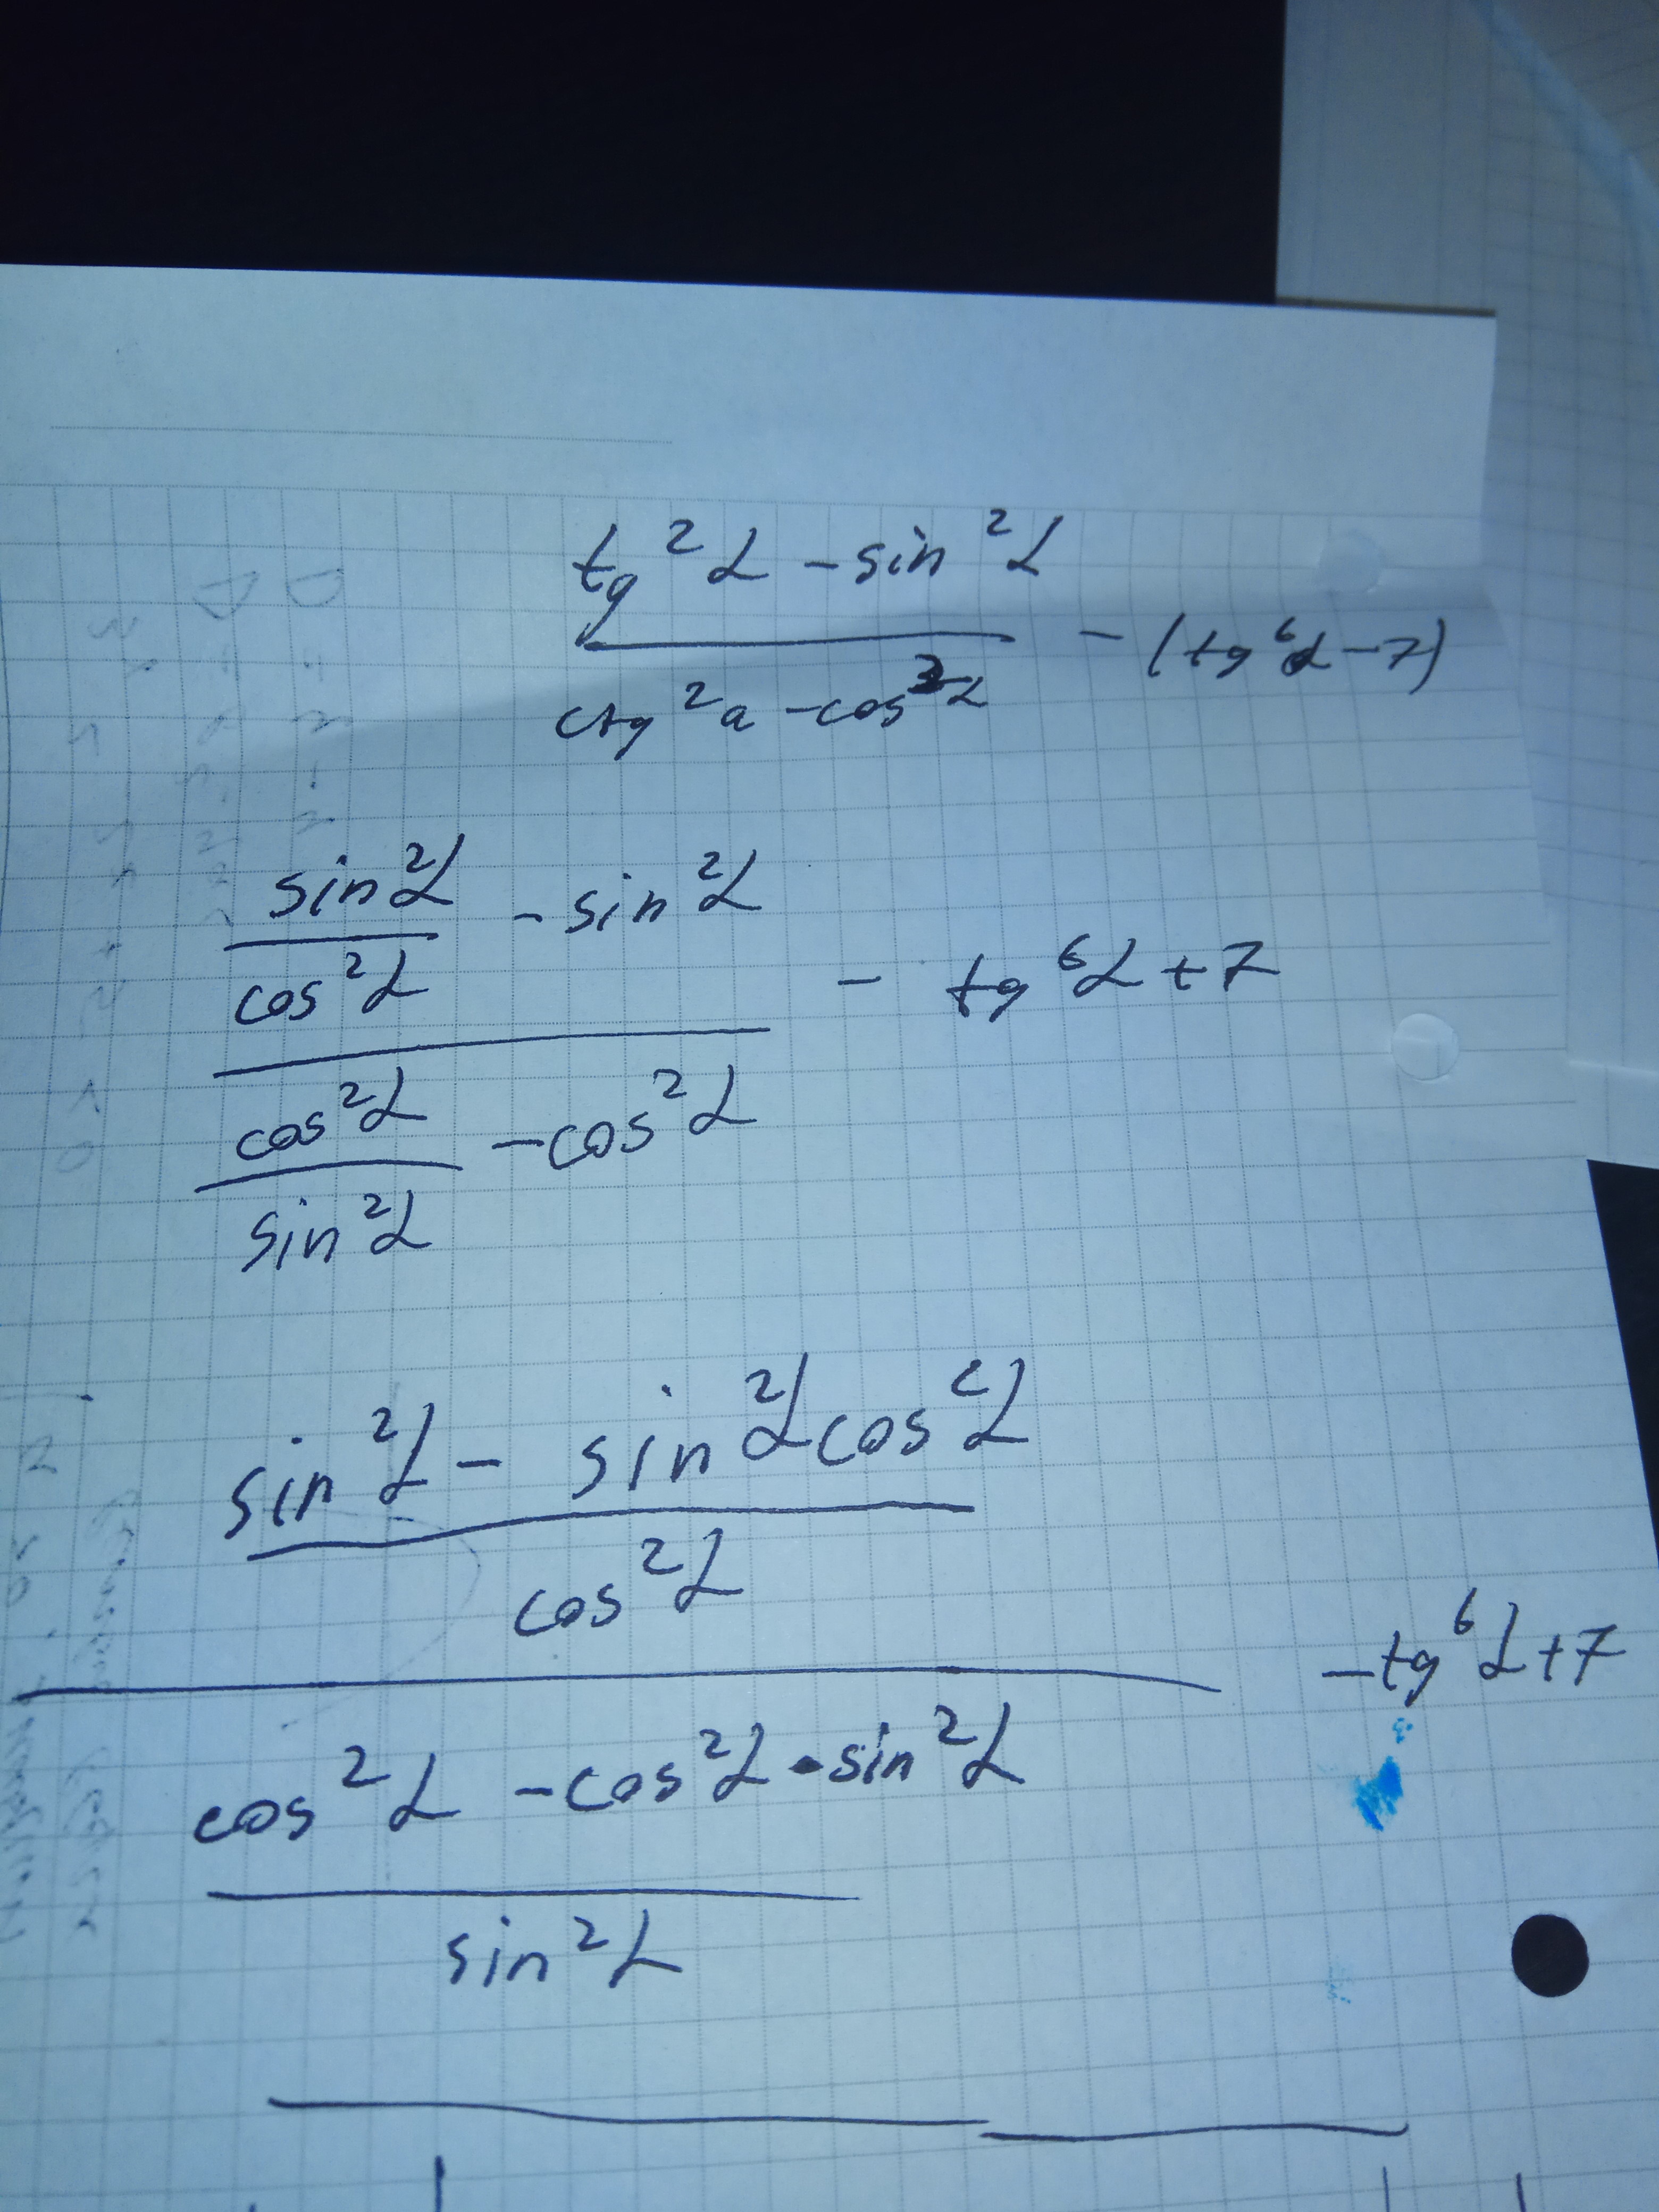 tg²α - sin²α
ctg²a - cos²α
- (tg⁶α - 7)
sin²α
cos²α
- sin²α
cos²α
sin²α
- cos²α
- tg⁶α + 7
sin²α - sin²α cos²α
cos²α
cos²α - cos²α · sin²α
sin²α
- tg⁶α + 7